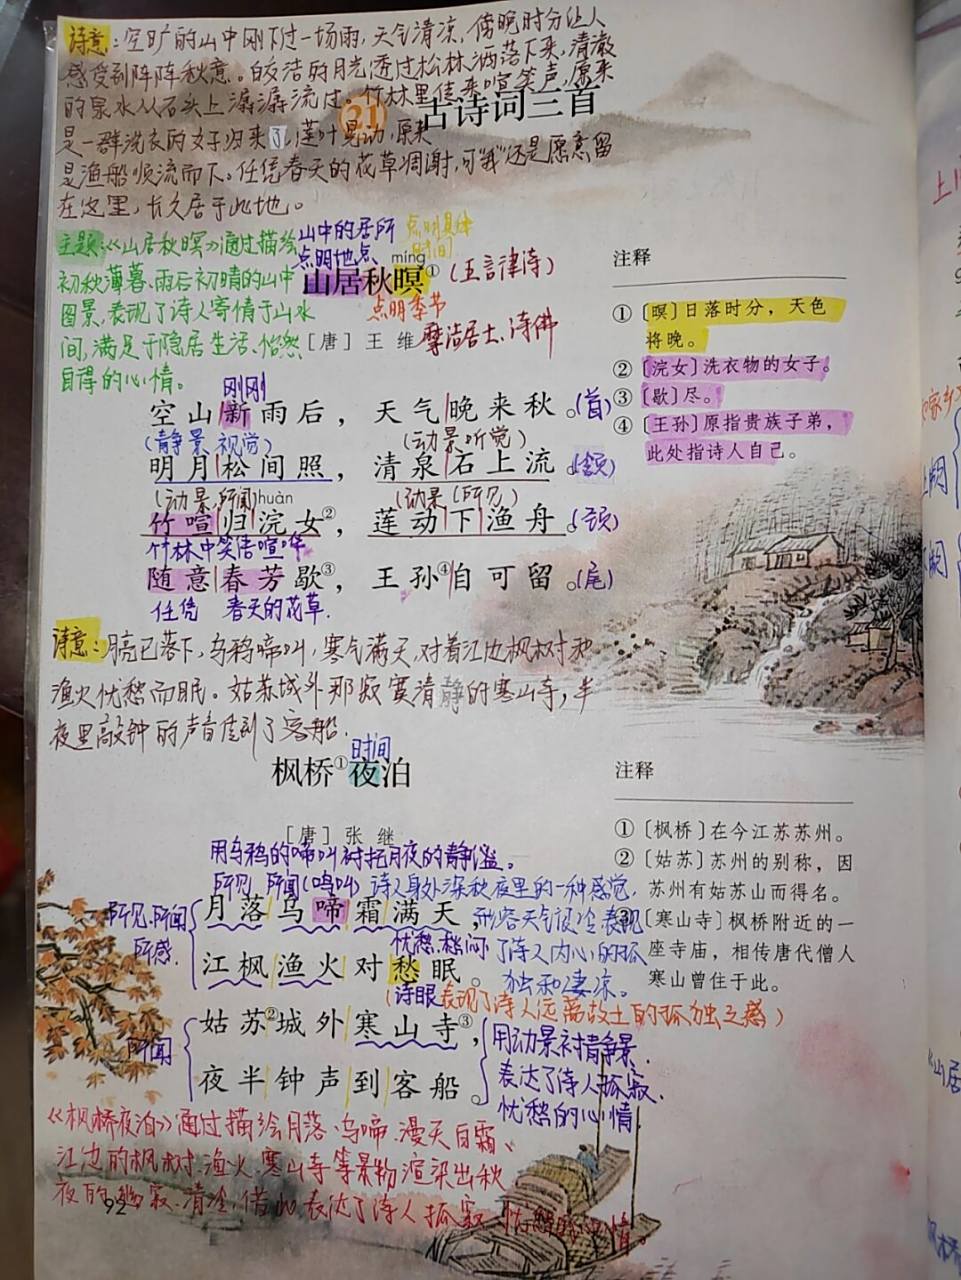 诗意：空旷的山中刚下过一场雨，天气清凉，傍晚时分让人
感受到阵阵秋意。皎洁的月光透过松林洒落下来，清澈
的泉水从石头上潺潺流过。竹林里传来喧笑声，原来
是一群洗衣的女子归来了，莲叶晃动，原来
是渔船顺流而下。任凭春天的花草凋谢，可"我"还是愿意留
在这里，长久居于此地。
21 古诗词三首
主题：《山居秋暝》通过描绘
初秋薄暮、雨后初晴的山中
图景，表现了诗人寄情于山水
间，满足于隐居生活、怡然
自得的心情。
山中的居所 点明具体
点明地点 时间
míng
山居秋暝①（五言律诗）
点明季节
［唐］王 维 摩诘居士、诗佛
刚刚
空山新雨后，天气晚来秋。(首)
(静景 视觉) (动景 听觉)
明月松间照，清泉石上流。(颔)
(动景、所闻) huàn (动景（所见）)
竹喧归浣女②，莲动下渔舟。(颈)
竹林中笑语喧哗
随意春芳歇③，王孙④自可留。(尾)
任凭 春天的花草.
注释
①［暝］日落时分，天色
将晚。
②［浣女］洗衣物的女子。
③［歇］尽。
④［王孙］原指贵族子弟，
此处指诗人自己。
诗意：月亮已落下，乌鸦啼叫，寒气满天，对着江边枫树和
渔火忧愁而眠。姑苏城外那寂寞清静的寒山寺，半
夜里敲钟的声音传到了客船.
时间
枫桥①夜泊
［唐］张 继
用乌鸦的啼叫衬托月夜的静谧。
所见 所闻(鸣叫) 诗人身处深秋夜里的一种感觉，
所见、所闻
所感.
月落乌啼霜满天，
形容天气很冷，表现
忧愁、愁闷 了诗人内心的孤
江枫渔火对愁眠。
独和凄凉。
(诗眼 表现了诗人远离故土的孤独之感)
所闻
姑苏②城外寒山寺③，
夜半钟声到客船。
用动景衬静景.
表达了诗人孤寂.
忧愁的心情
注释
①［枫桥］在今江苏苏州。
②［姑苏］苏州的别称，因
苏州有姑苏山而得名。
③［寒山寺］枫桥附近的一
座寺庙，相传唐代僧人
寒山曾住于此。
《枫桥夜泊》通过描绘月落、乌啼、漫天白霜、
江边的枫树、渔火、寒山寺等景物渲染出秋
夜的幽寂、清冷，借此表达了诗人孤寂
92